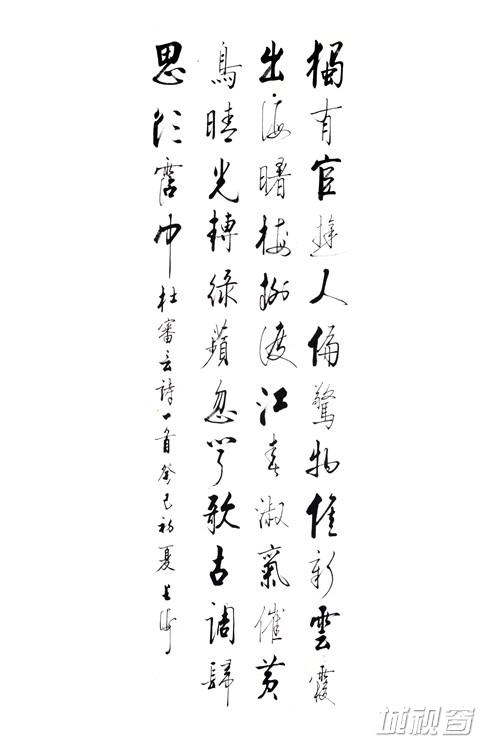 獨有宦遊人偏驚物候新雲霞
出海曙梅柳渡江春淑氣催黃
鳥晴光轉綠蘋忽聞歌古調歸
思欲霑巾杜審言詩一首癸巳初夏
城视窗